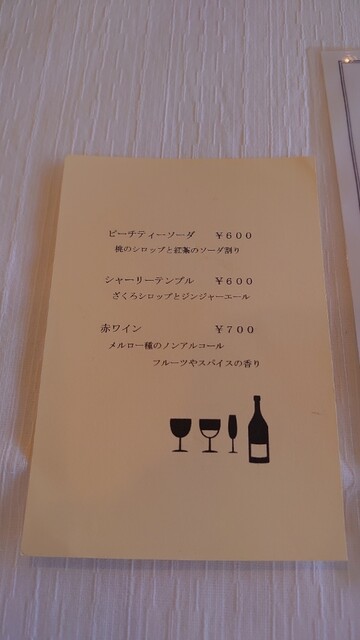 ピーチティーソーダ　￥６００
桃のシロップと紅茶のソーダ割り
シャーリーテンプル　￥６００
ざくろシロップとジンジャーエール
赤ワイン　￥７００
メルロー種のノンアルコール
フルーツやスパイスの香り